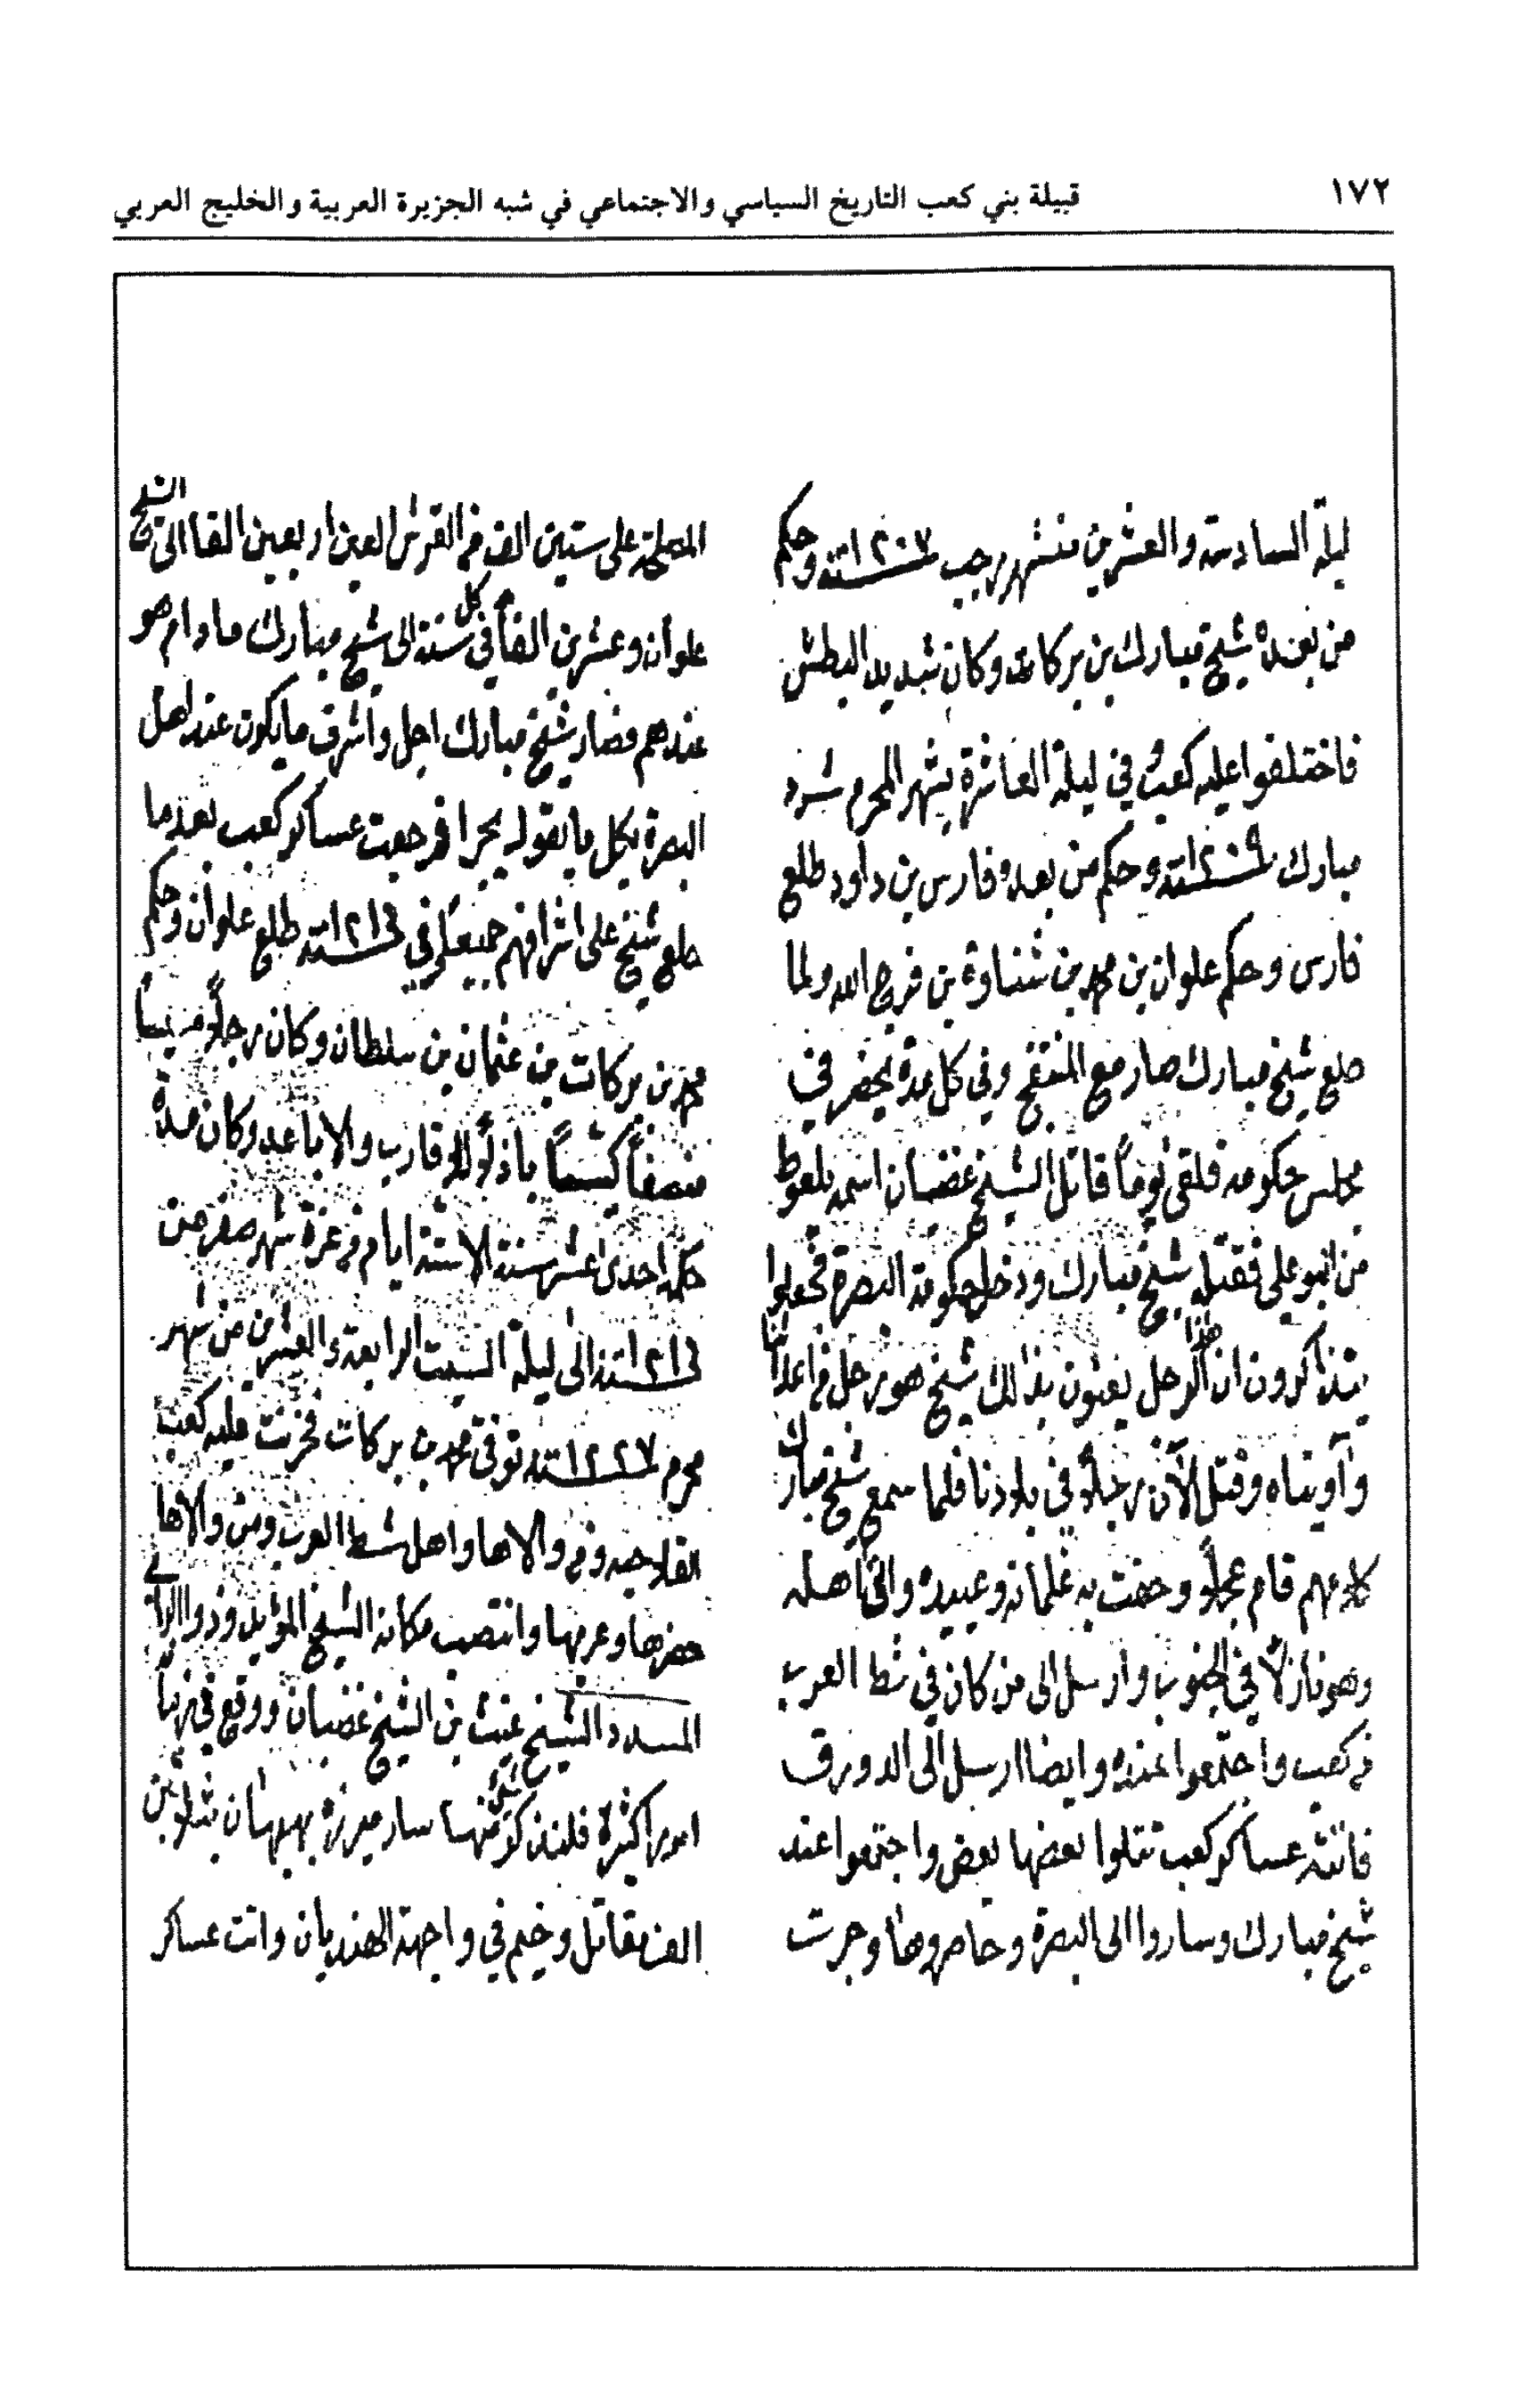 ١٧٢
قبيلة بني كعب التاريخ السياسي والاجتماعي في شبه الجزيرة العربية والخليج العربي
ليلة السادسة والعشرين من شهر رجب سنة ١٢٠٧ وحكم
من بعده شيخ مبارك بن بركات وكان شديد البطش
فاختلفوا عليه كعب في ليلة العاشرة بشهر المحرم شرد
مبارك سنة ١٢٠٩ وحكم من بعده فارس بن داود طلع
فارس وحكم علوان بن محمد بن شناوة بن فرج الله ولما
طلع شيخ مبارك صار مع المنتفج وفي كل مدة يحضر في
مجلس حكومه فلقى يوماً قاتل الشيخ غضبان اسمه بلعوط
من البو علي فقتله شيخ مبارك ودخل حكومة البصرة فجعلوا
يتذاكرون ان هذا الرجل يعنون بذالك شيخ هو رجل من اعدائنا
وآويناه وقتل الآن رجلاً في بلادنا فلما سمع شيخ مبارك
كلامهم قام عجلاً وحفت به غلمانه وعبيده واتى اهله
وهو نازلاً في الجنوب وارسل الى من كان في شط العرب
من كعب واجتمعوا عنده وايضا ارسل الى الدورق
فانته عساكر كعب تتلوا بعضها بعض واجتمعوا عند
شيخ مبارك وساروا الى البصرة وحاصروها وجرت
المصلحة على ستين الف من القرش العين اربعين الفا الى الشيخ
علوان وعشرين الفاً في كل سنة الى شيخ مبارك مادام هو
عندهم فصار شيخ مبارك اجل واشرف ما يكون عند اهل
البصرة بكل ما يقوله يجرا فرجعت عساكر كعب بعد ما
خلع شيخ على اشرافهم جميعا وفي سنة ١٢١٦ طلع علوان وحكم
محمد بن بركات بن عثمان بن سلطان وكان رجلاً مهيباً
منصفاً كشماً باذلاً للاقارب والاباعد وكان مدة
حكمه احدى عشر سنة الا ستة ايام من غرة شهر صفر من
سنة ١٢١٦ الى ليلة السبت الرابعة والعشرين من شهر
محرم سنة ١٢٢٧ توفي محمد بن بركات فحزنت عليه كعب
الفلاحيه ومن والاها واهل شط العرب ومن والاها
حضرها وعربها وانتصب مكانه الشيخ المؤيد وذو الراي
المسدد الشيخ غيث بن الشيخ غضبان ووقع في زمانه
امور اكثرة فلنذكر شيئ منها سار ميرزه بهبهان بثلاثين
الف مقاتل وخيم في واجهة الهنديان واتت عساكر